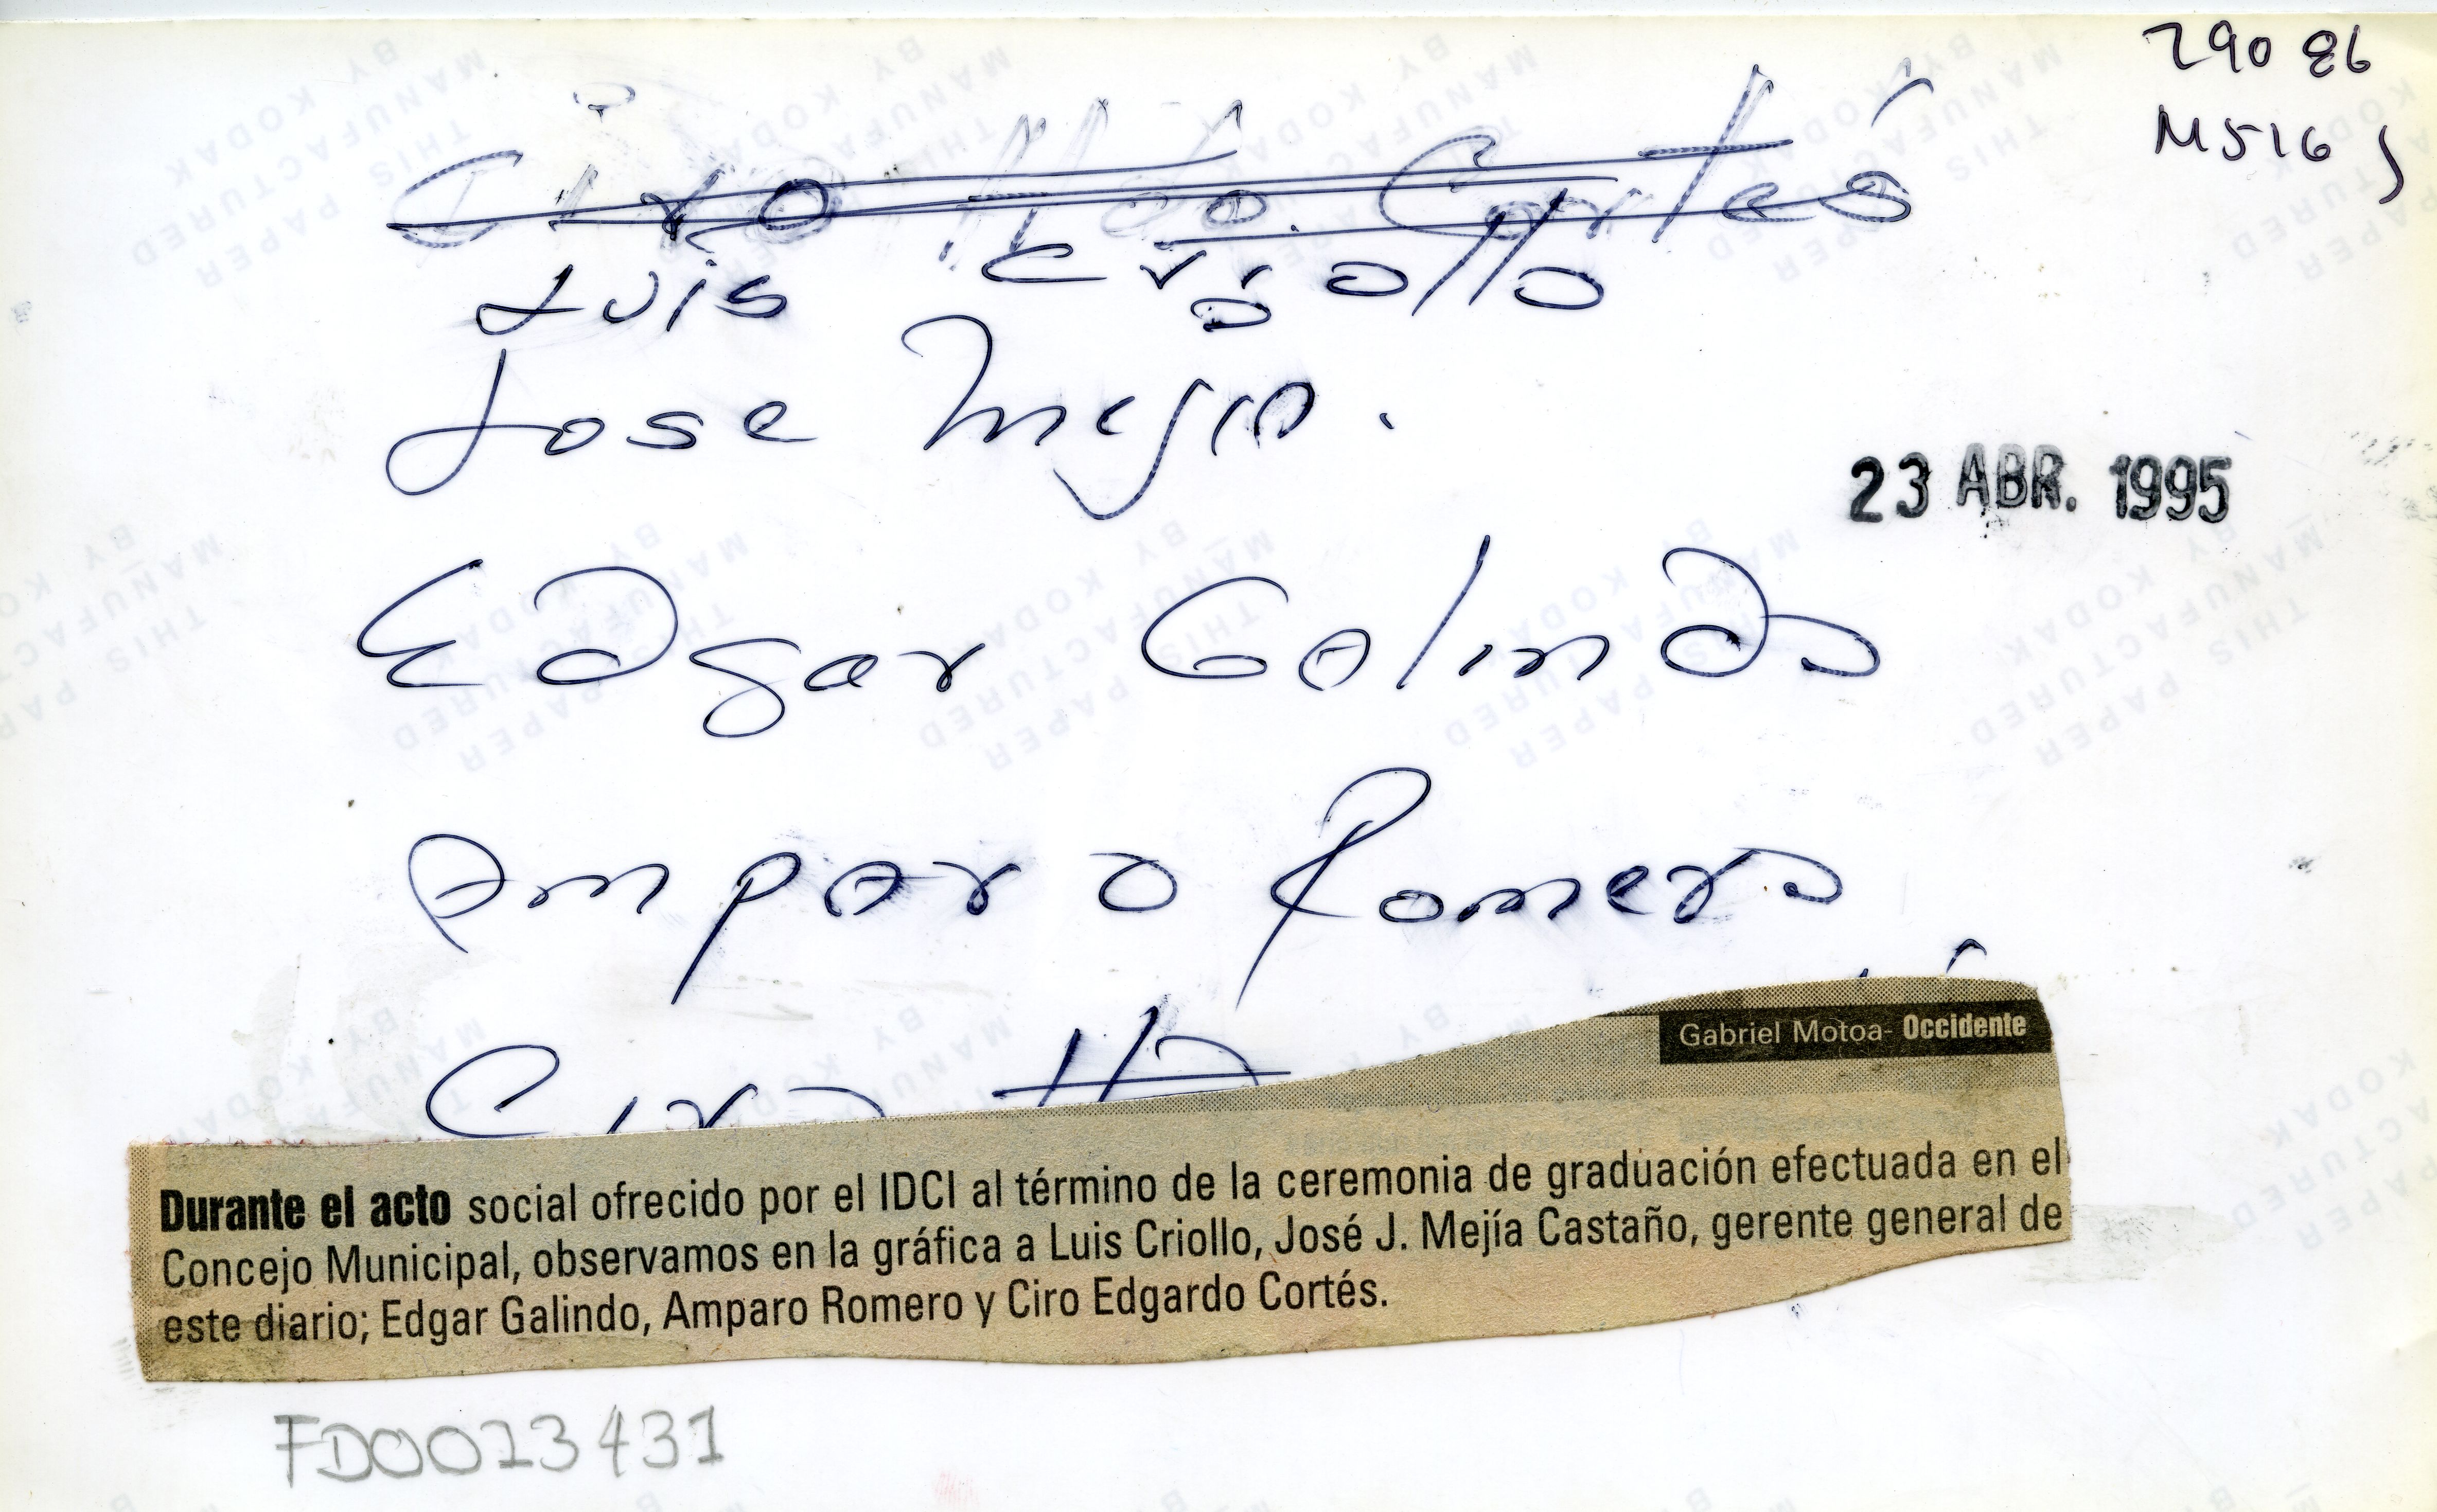 29086
M516j
Ciro Hdo. Cortés
Luis Criollo
Jose Mejia.
23 ABR. 1995
Edgar Galindo
Amparo Romero
Ciro
Gabriel Motoa- Occidente
Durante el acto social ofrecido por el IDCI al término de la ceremonia de graduación efectuada en el
Concejo Municipal, observamos en la gráfica a Luis Criollo, José J. Mejía Castaño, gerente general de
este diario; Edgar Galindo, Amparo Romero y Ciro Edgardo Cortés.
FD0023431
THIS PAPER
MANUFACTURED
BY KODAK